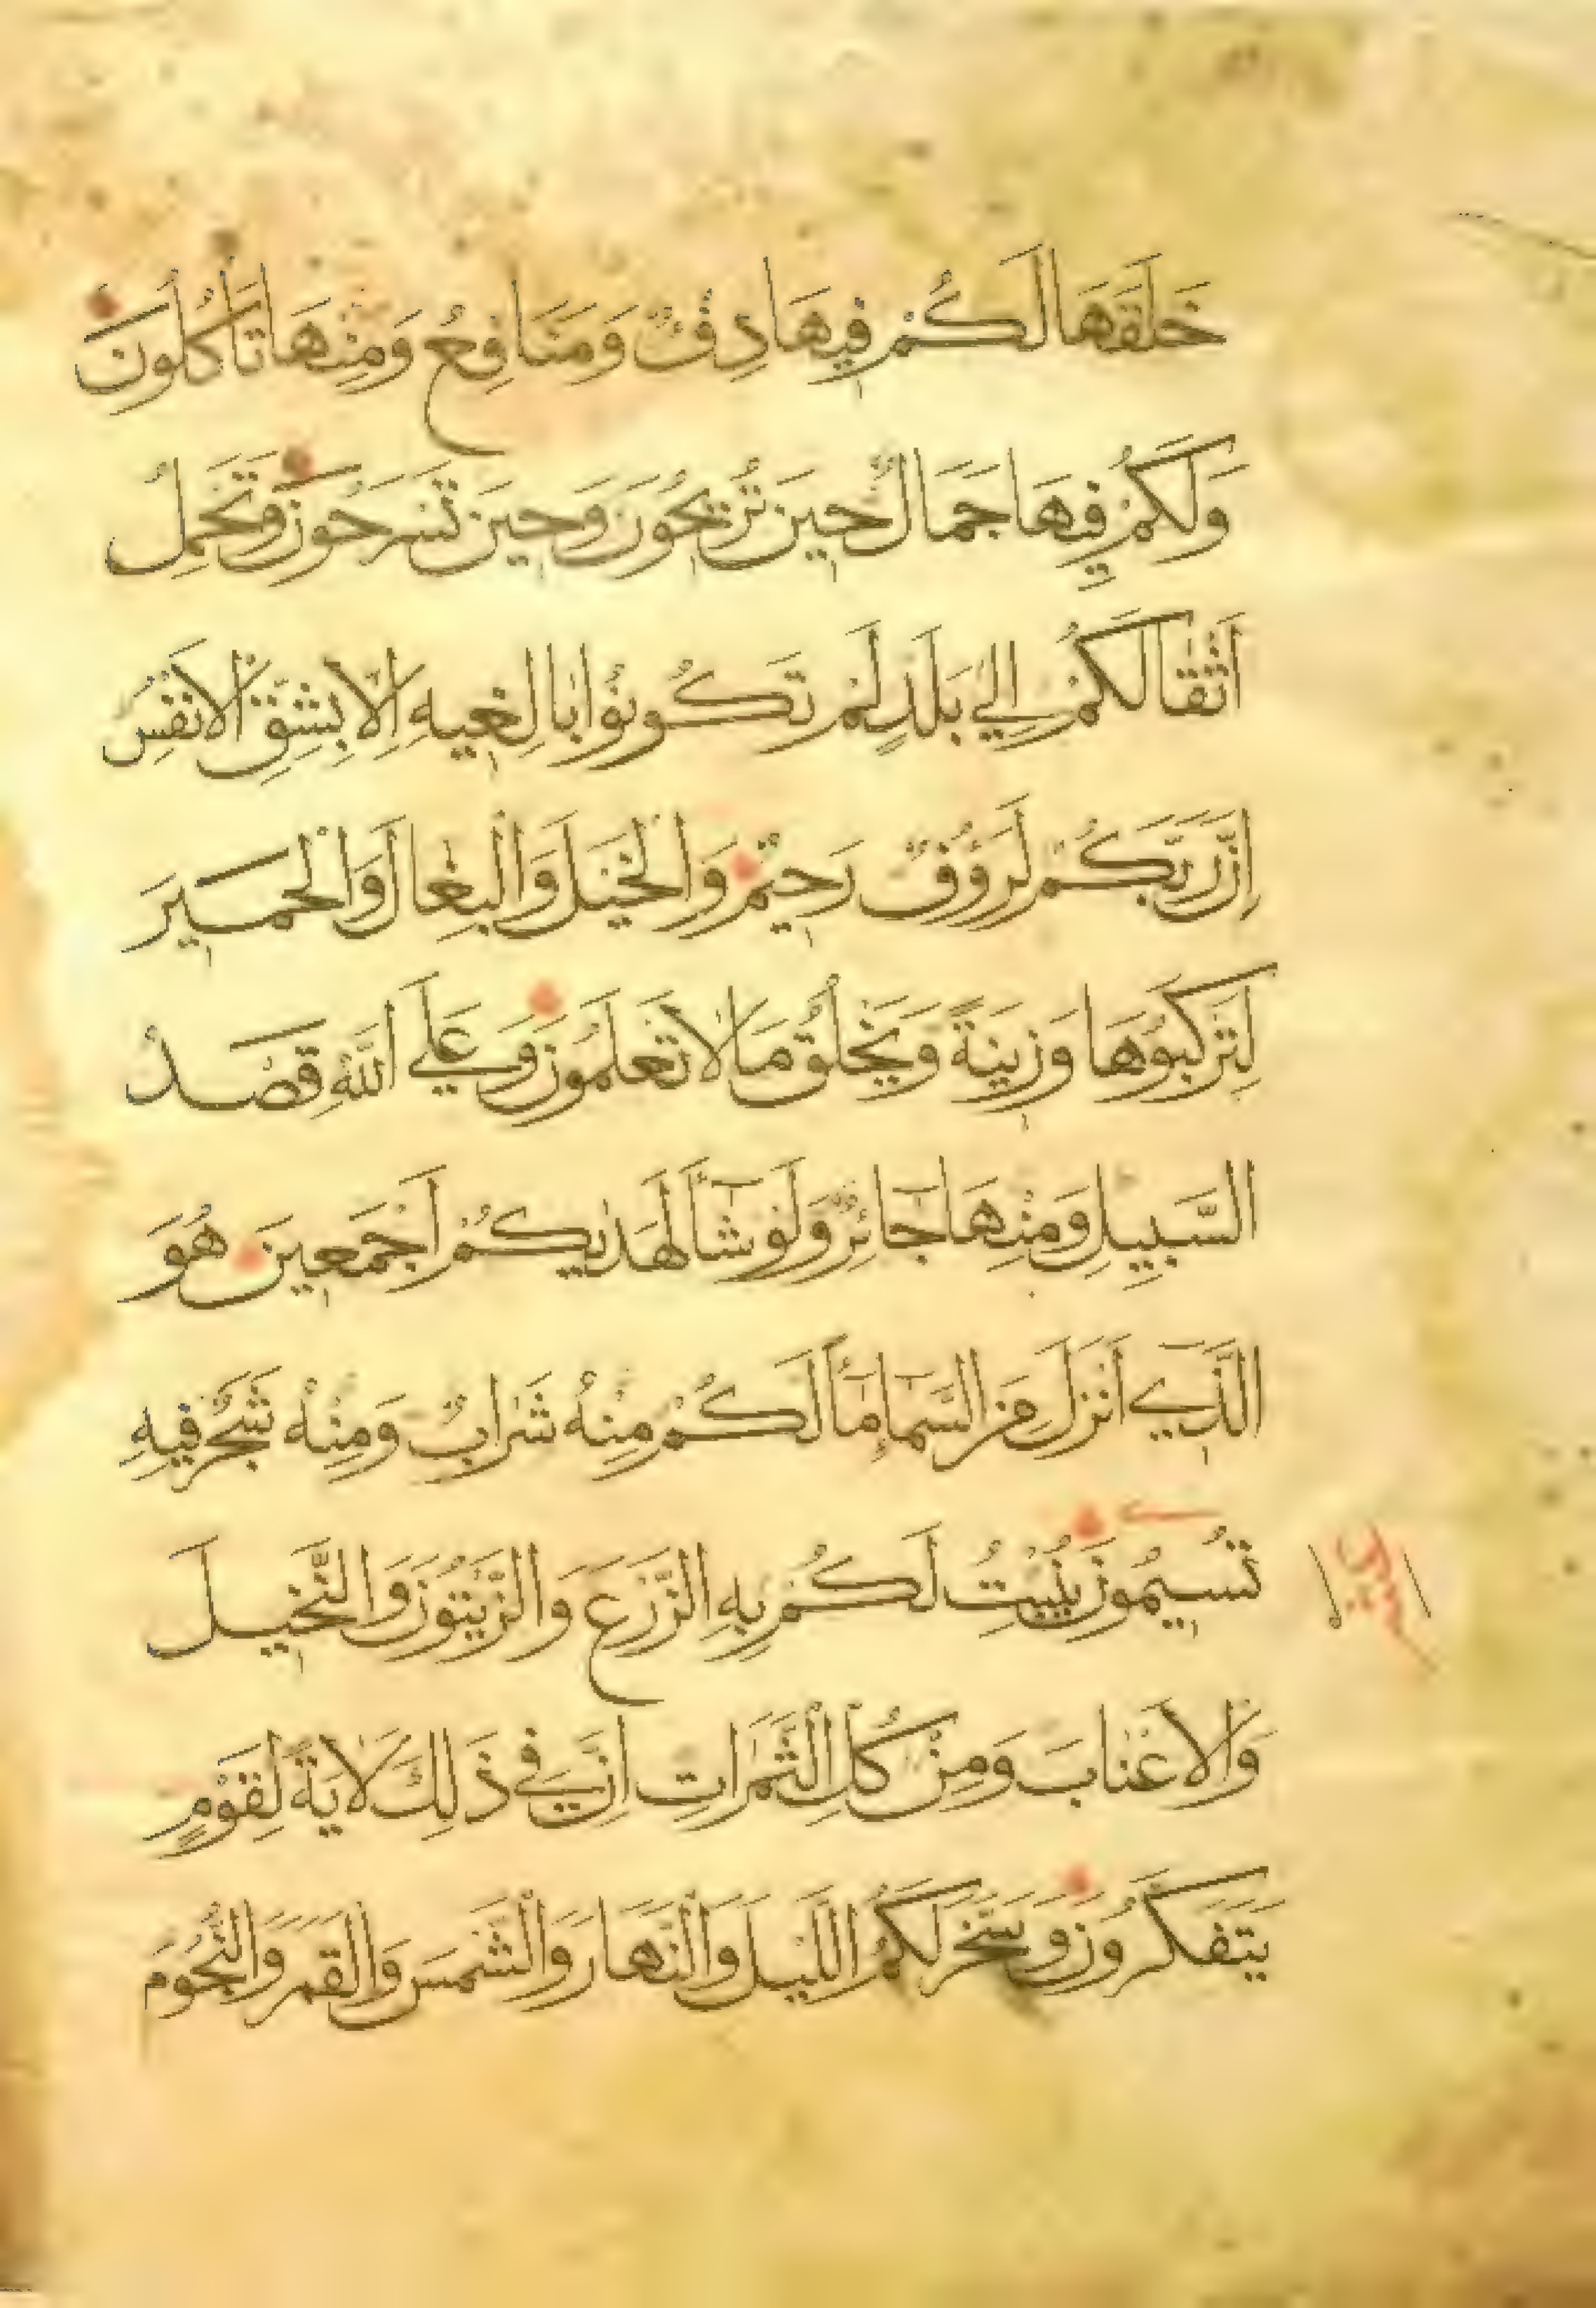 خَلَقَهَا لَكُمْ فِيهَا دِفْءٌ وَمَنَافِعُ وَمِنْهَا تَأْكُلُونَ
وَلَكُمْ فِيهَا جَمَالٌ حِينَ تُرِيحُونَ وَحِينَ تَسْرَحُونَ وَتَحْمِلُ
اَثْقَالَكُمْ اِلٰي بَلَدٍ لَمْ تَكُونُوْا بَالِغِيهِ اِلَّا بِشِقِّ الْاَنْفُسِ
اِنَّ رَبَّكُمْ لَرَؤُفٌ رَحِيْمٌ وَالْخَيْلَ وَالْبِغَالَ وَالْحَمِيرَ
لِتَرْكَبُوْهَا وَزِينَةً وَيَخْلُقُ مَا لَا تَعْلَمُونَ وَعَلَي اللّٰهِ قَصْدُ
السَّبِيلِ وَمِنْهَا جَآئِرٌ وَلَوْ شَآءَ لَهَدٰيكُمْ اَجْمَعِينَ هُوَ
الَّذِٓي اَنْزَلَ مِنَ السَّمَآءِ مَآءً لَكُمْ مِنْهُ شَرَابٌ وَمِنْهُ شَجَرٌ فِيهِ
تُسِيمُونَ يُنْبِتُ لَكُمْ بِهِ الزَّرْعَ وَالزَّيْتُوْنَ وَالنَّخِيلَ
وَالْاَعْنَابَ وَمِنْ كُلِّ الثَّمَرَاتِ اِنَّ فِي ذَلِكَ لَاٰيَةً لِقَوْمٍ
يَتَفَكَّرُوْنَ وَسَخَّرَ لَكُمُ اللَّيْلَ وَالنَّهَارَ وَالشَّمْسَ وَالْقَمَرَ وَالنُّجُوْمَ